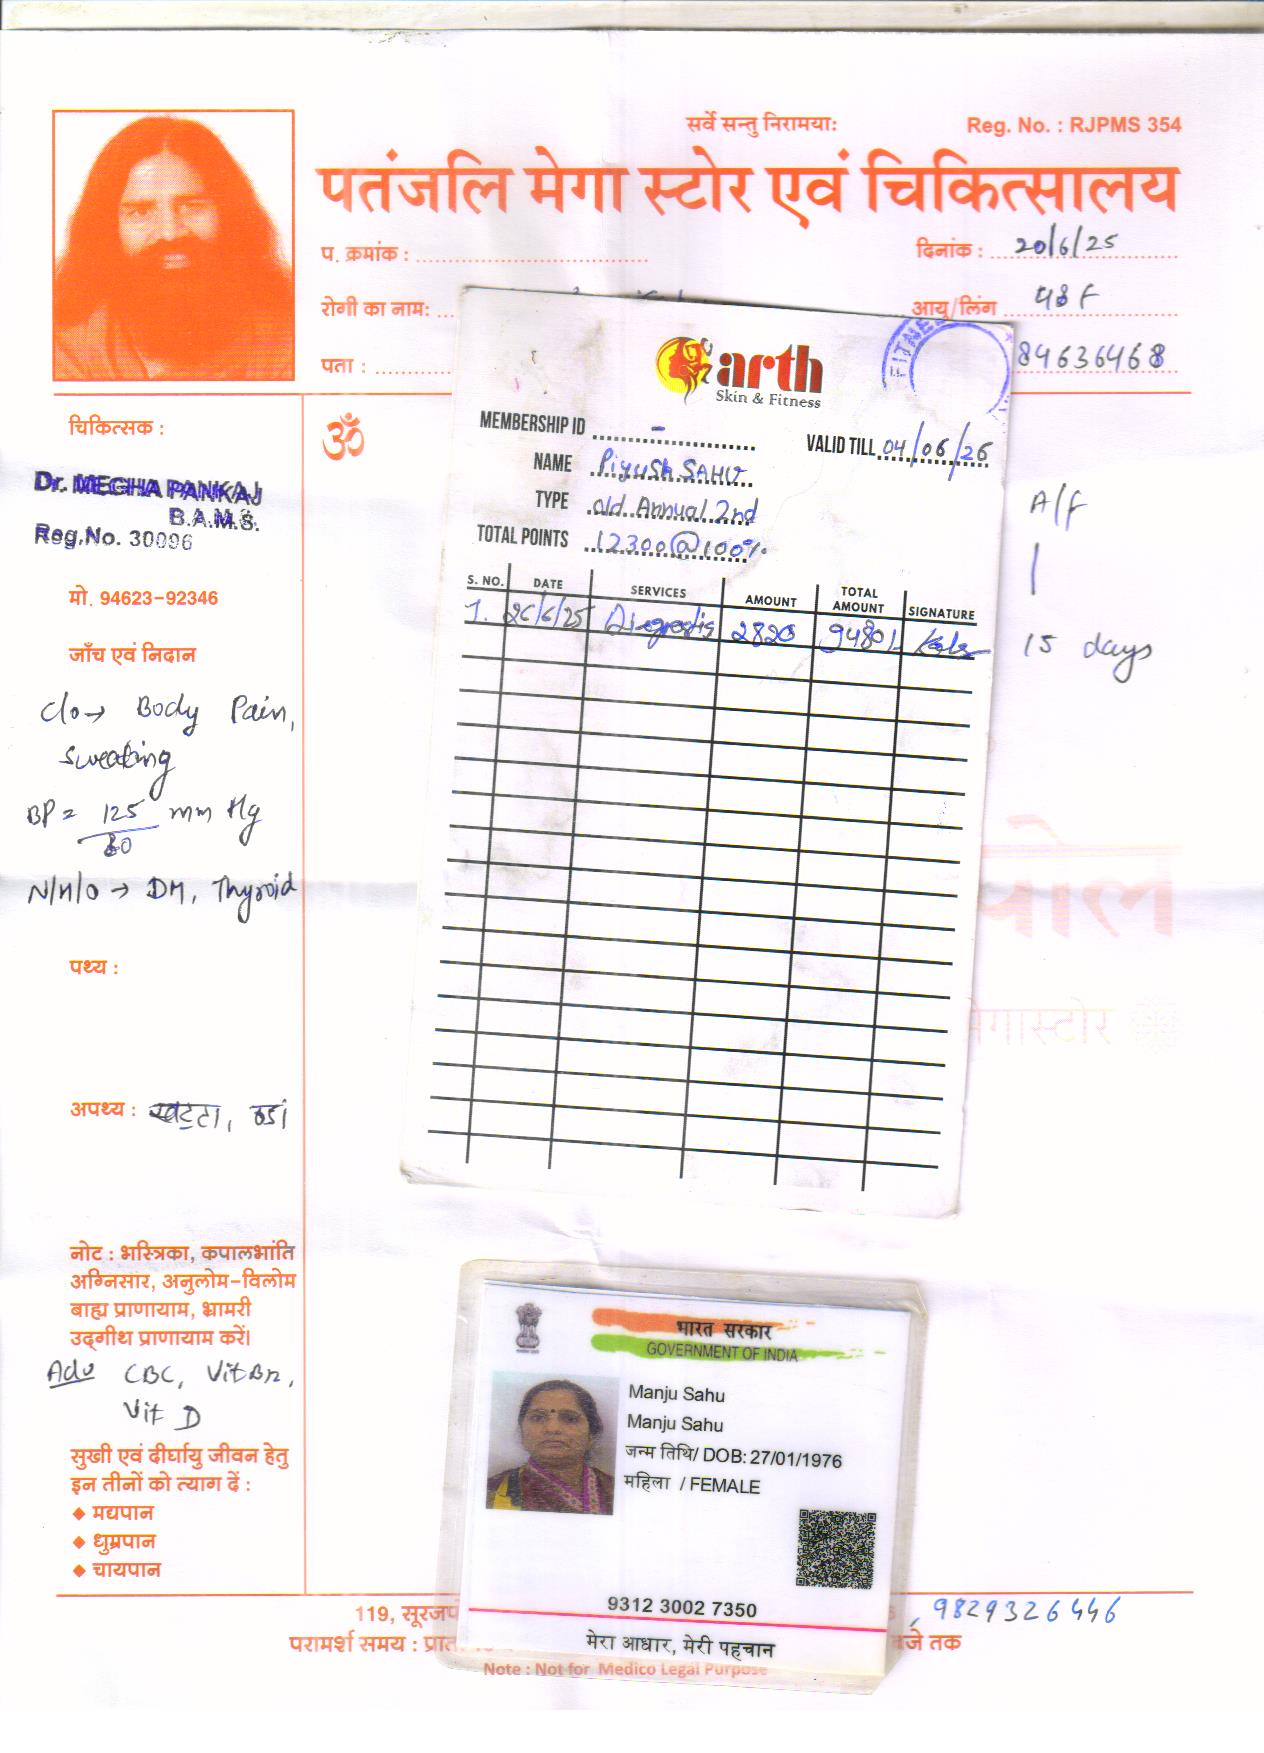 सर्वे सन्तु निरामयाः
Reg. No. : RJPMS 354
पतंजलि मेगा स्टोर एवं चिकित्सालय
प. क्रमांक :
दिनांक : 20/6/25
रोगी का नाम:
आयु/लिंग 48 F
पता :
84636468
चिकित्सक :
Dr. MEGHA PANKAJ
B.A.M.S.
Reg.No. 30096
मो. 94623-92346
जाँच एवं निदान
C/o→ Body Pain,
Sweating
BP = 125 mm Hg
80
N/H/O → DM, Thyroid
पथ्य :
अपथ्य : खट्टा, ठंडा
नोट : भस्त्रिका, कपालभांति
अग्निसार, अनुलोम-विलोम
बाह्य प्राणायाम, भ्रामरी
उद्गीथ प्राणायाम करें।
Adv CBC, Vit B12,
Vit D
सुखी एवं दीर्घायु जीवन हेतु
इन तीनों को त्याग दें :
◆ मद्यपान
◆ धुम्रपान
◆ चायपान
ॐ
A/F
15 days
arth
Skin & Fitness
FITNE
MEMBERSHIP ID -
VALID TILL 04/06/26
NAME Piyush SAHU
TYPE old Annual 2nd
TOTAL POINTS 12300@100%
S. NO. DATE SERVICES AMOUNT TOTAL AMOUNT SIGNATURE
1. 26/6/25 2820 9480/-
मेगास्टोर
भारत सरकार
GOVERNMENT OF INDIA
Manju Sahu
Manju Sahu
जन्म तिथि/ DOB: 27/01/1976
महिला / FEMALE
9312 3002 7350
मेरा आधार, मेरी पहचान
119, सूरजपो
, 9829326446
परामर्श समय : प्रातः
बजे तक
Note : Not for Medico Legal Purpose